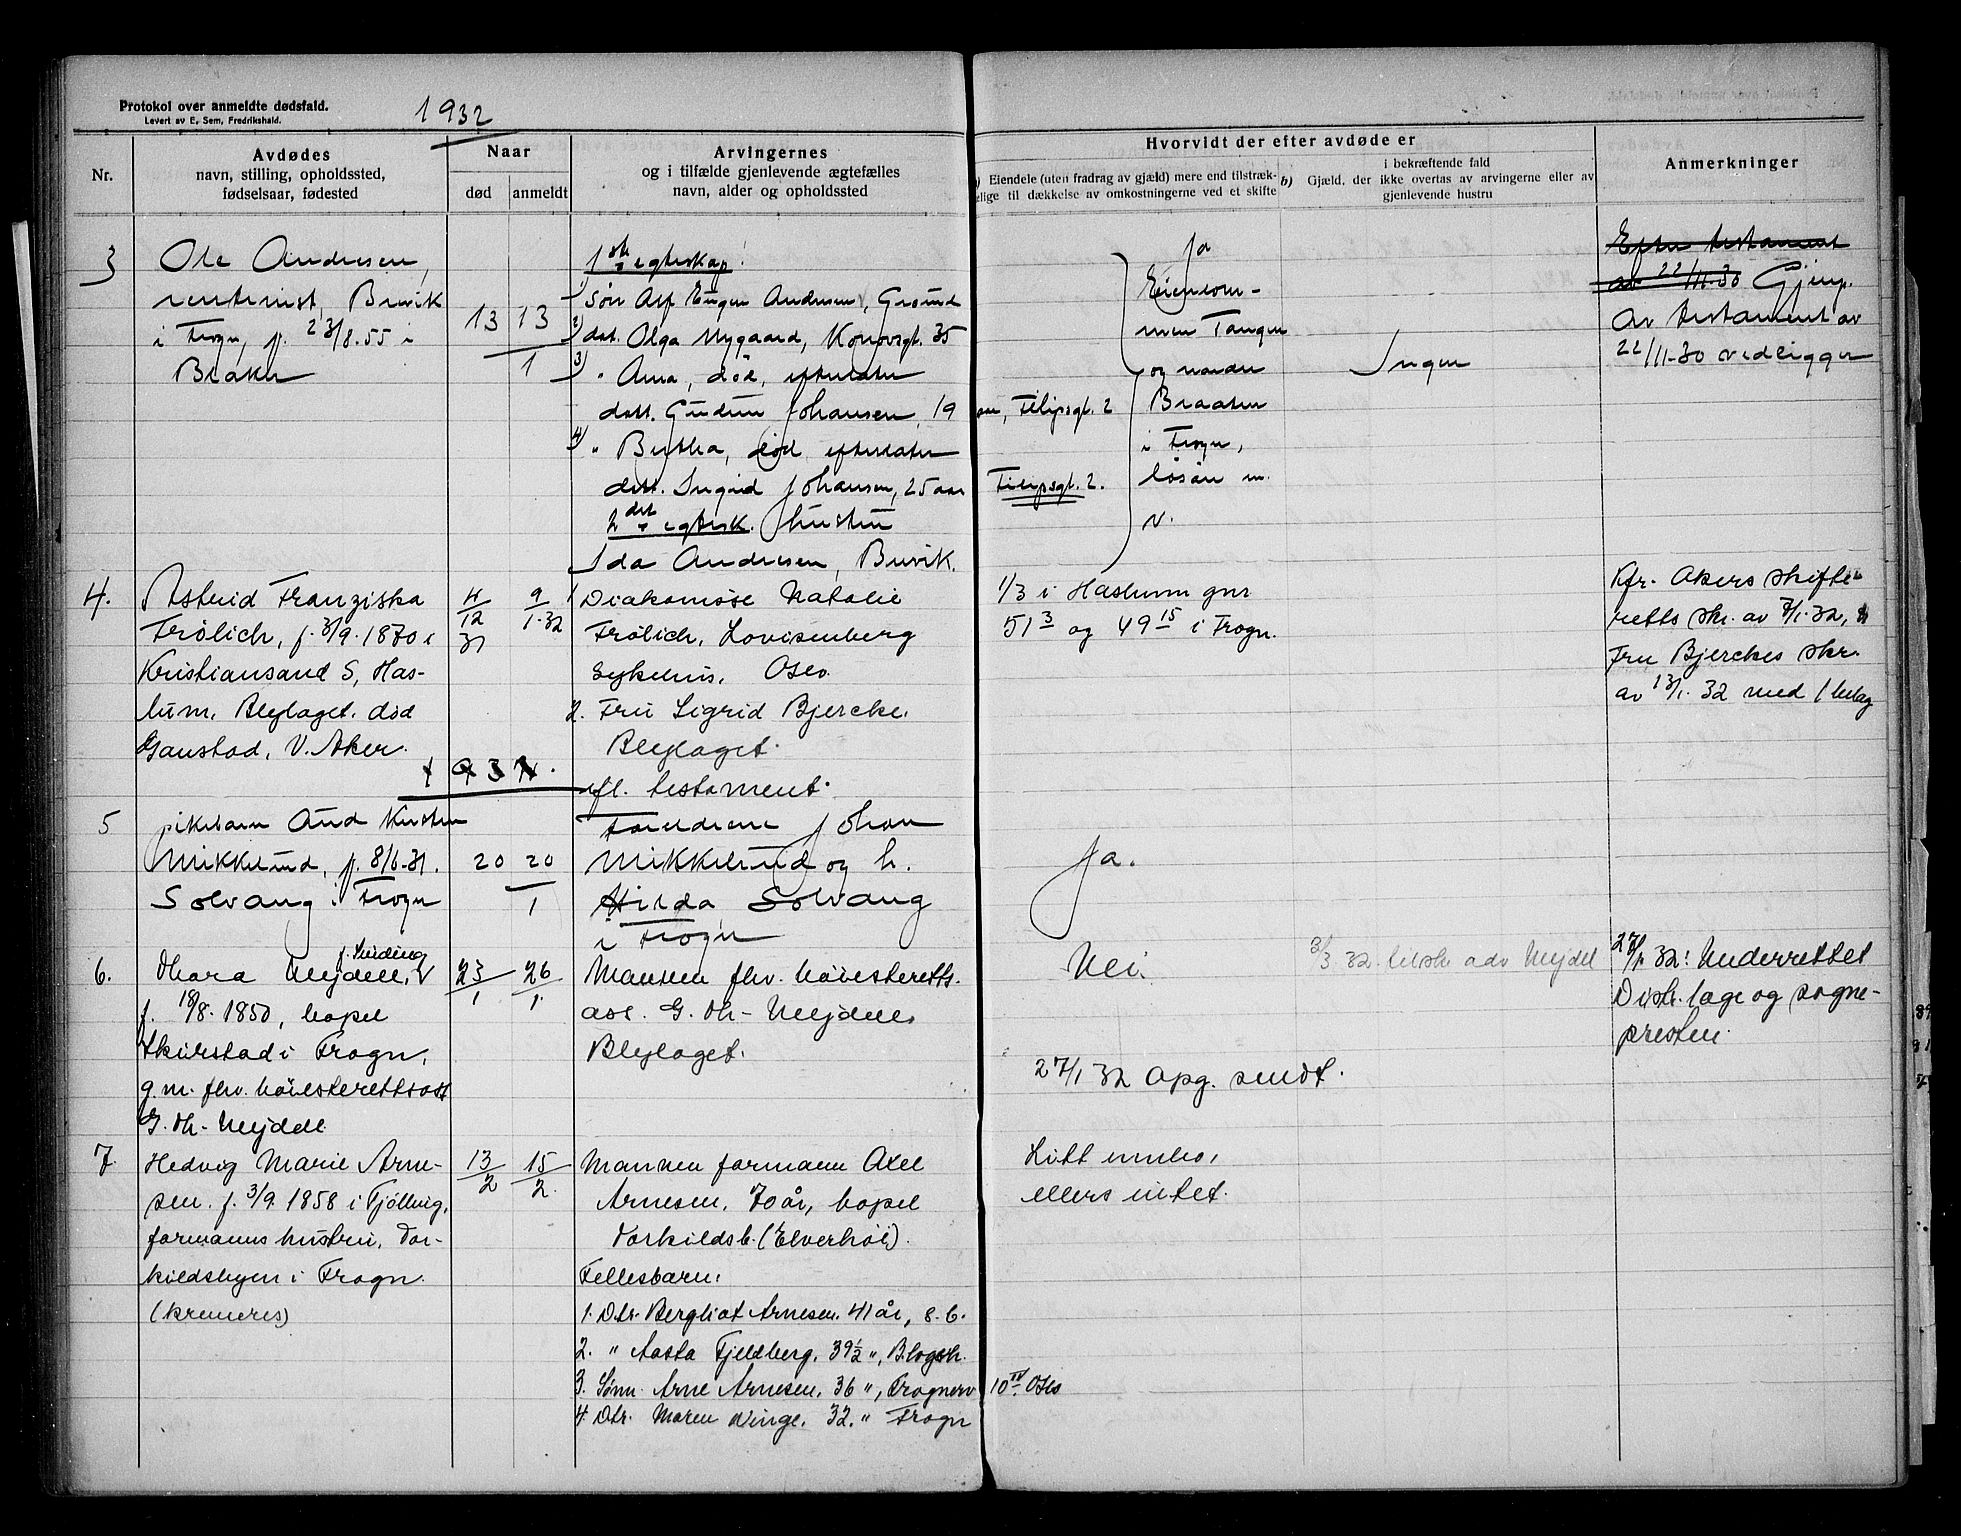 Protokol over anmeldte dødsfald.
Levert av E. Sem, Fredrikshald.
1932
Nr.
Avdødes
navn, stilling, opholdssted,
fødselsaar, fødested
Naar
død
anmeldt
Arvingernes
og i tilfælde gjenlevende ægtefælles
navn, alder og opholdssted
Hvorvidt der efter avdøde er
Eiendele (uten fradrag av gjæld) mere end tilstræk-
lige til dækkelse av omkostningerne ved et skifte
b) Gjæld, der
i bekræftende fald
ikke overtas av arvingerne eller av
gjenlevende hustru
Anmerkninger
3
Ole Andresen,
rentenist, Burvik
i Frogn, f. 23/8.55 i
Braker
13 13
1
1ste egteskap:
1) Søn Alf Eugen Andersen, Grønud
2) dat. Olga Nygaard, Konovsgt. 35
3) " Anna, død, efterlater
datt. Gudrun Johansen, 19 aar, Filipsgt. 2
4) " Bertha, død, efterlater
datt. Ingrid Johansen, 25 aar Filipsgt. 2.
2det egtesk. hustru
Ida Andresen, Burvik.
Ja
Eiendom-
men Tangen
og nordre
Braaten
i Frogn,
løsøre m.
v.
Ingen
Efter testament
av 22/11-30 Gjenp.
av testament av
22/11-30 vedligger
4.
Astrid Franziska
Frølich, f. 3/9. 1870 i
Kristiansand S, Has-
lum, Blylaget. død
Gaustad, V. Aker.
4/12 31
9/1.32
1 Diakonisse Natalie
Frølich, Lovisenberg
sykehus, Oslo
2. Fru Sigrid Bjercke,
Blylaget.
efl. testament.
1/3 i Haslum gnr
51 3 og 49 15 i Frogn.
Kfr. Akers skifte-
retts skr. av 7/1. 32, &
Fru Bjerckes skr.
av 13/1. 32 med 1 bilag
1932.
5
pikebarn Aud Kirsten
Mikkelrud, f. 8/6-31.
Solvang i Frogn
20 20
1
Foreldrene Johan
Mikkelrud og h.
Hilda, Solvang
i Frogn
Ja.
6.
f. Sinding
Thora Mejdell,
f. 18/8. 1850, bopel
Skurstad i Frogn,
g.m. fhv. høiesterettsass
G. Th- Mejdell
23/1
26/1.
Mannen fhv. høiesteretts.
ass. G. Th- Mejdell,
Blylaget.
Nei.
3/3 32. tilsk. adv Mejdel
27/1 32: Underrettet
Distr. læge og sogne-
presten.
27/1 32 Opg. sendt.
7.
Hedvig Marie Arne-
sen. f. 3/9. 1858 i Tjølling,
formanns hustru, Tor-
kildsbyen i Frogn.
(kremeres)
13/2
15/2.
Mannen formann Axel
Arnesen, 70 år, bopel
Torkildsb. (Elverhøi).
Fellesbarn:
1. Dtr. Bergliot Arnesen. 41 år, s. b.
2. " Aasta Fjeldberg. 39½ ", B.logsh.
3. Sønn Arne Arnesen. 36 ", Frognerv 10 IV Oslo
4. Dtr. Maren Winge. 32. " Frogn
Litt innbo,
ellers intet.